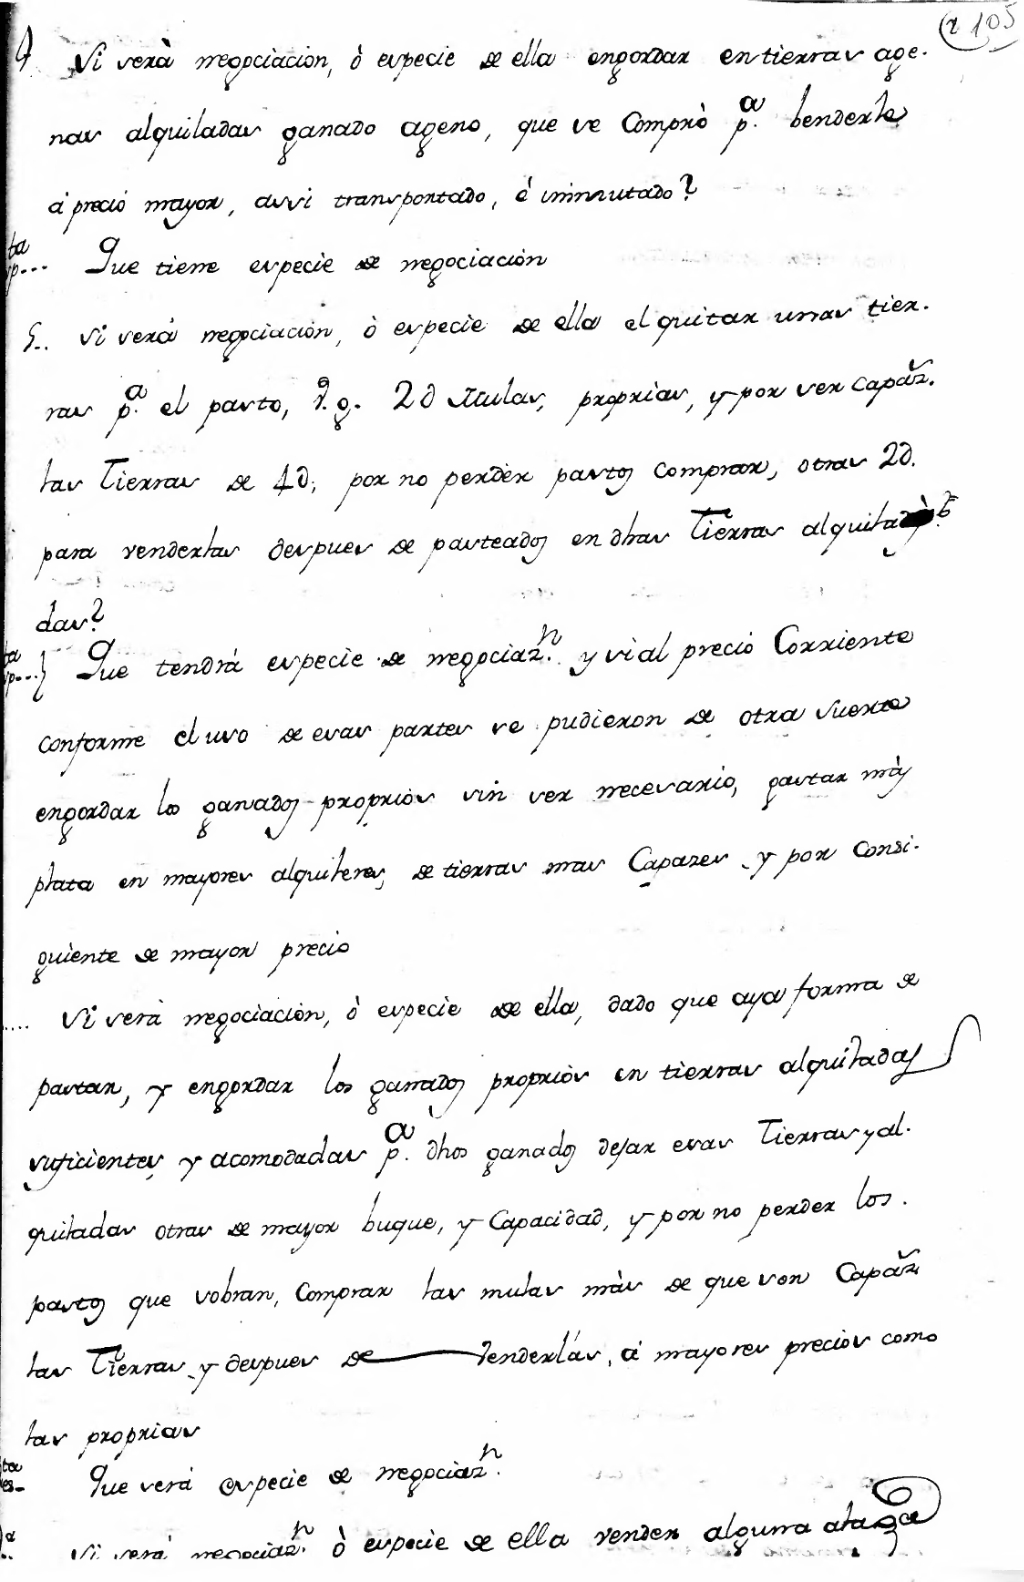 (2 105
4 Si será negociación, ò especie de ella engordar en tierras age-
nas alquiladas ganado ageno, que se Comprò p.ª benderlo
á precio mayor, assi transportado, é inmutado?
p...ta Que tiene especie de negociación
5.. Si será negociación, ò especie de ella el quitar unas tier-
ras p.ª el pasto, v. g. 2d Mulas, proprias, y por ser capaz.s
las Tierras de 4d, por no perder pastos comprar, otras 2d.
para venderlas despues de pasteados en dhas Tierras alquila
das?
p...ta Que tendrá especie de negociaz.n y si al precio Corriente
conforme el uso de esas partes se pudieron de otra suerte
engordar los ganados proprios sin ser necesario, gastar más
plata en mayores alquileres, de tierras mas Capazes y por Consi-
guiente de mayor precio
.... Si será negociación, ò especie de ella, dado que aya forma de
pastar, y engordar los ganados proprios en tierras alquiladas
suficientes, y acomodadas p.ª dhos ganados dejar esas Tierras y al-
quiladas otras de mayor buque, y Capacidad, y por no perder los.
pastos que sobran, Comprar las mulas más de que son Capaz.s
las Tierras y despues de venderlas, á mayores precios como
las proprias
ta es- Que será especie de negociaz.n
a .. Si será negociaz.n ò especie de ella vender alguna alaja